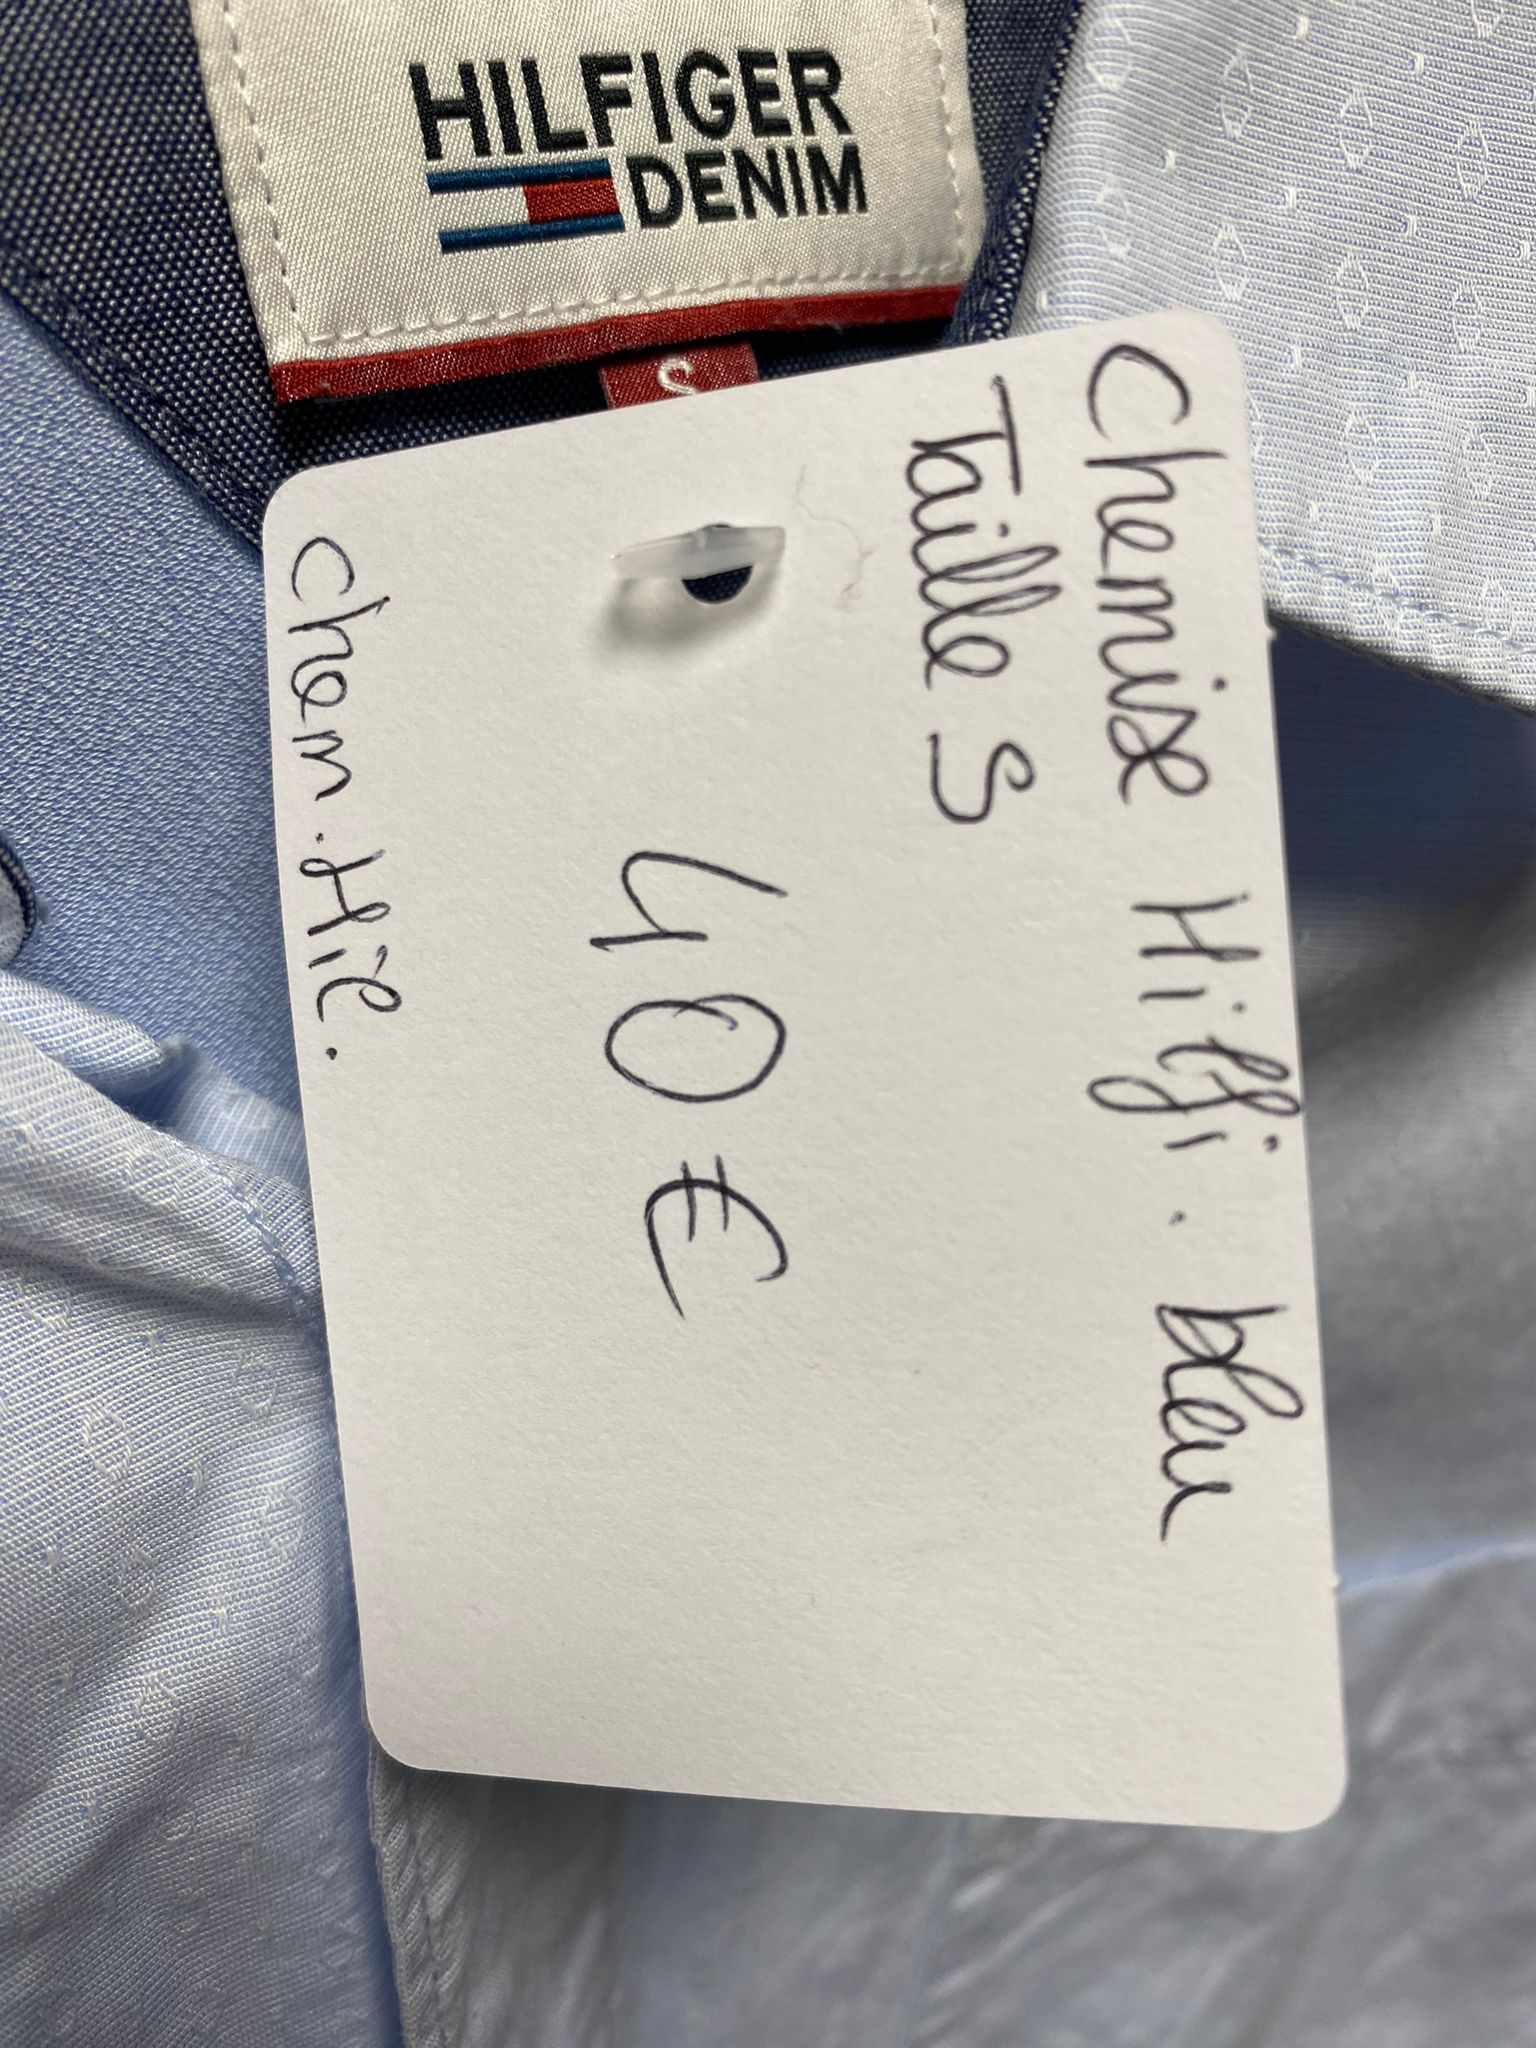 HILFIGER
DENIM
S
Chemise Hilfi. bleu
Taille S
40€
Chem. Hil.